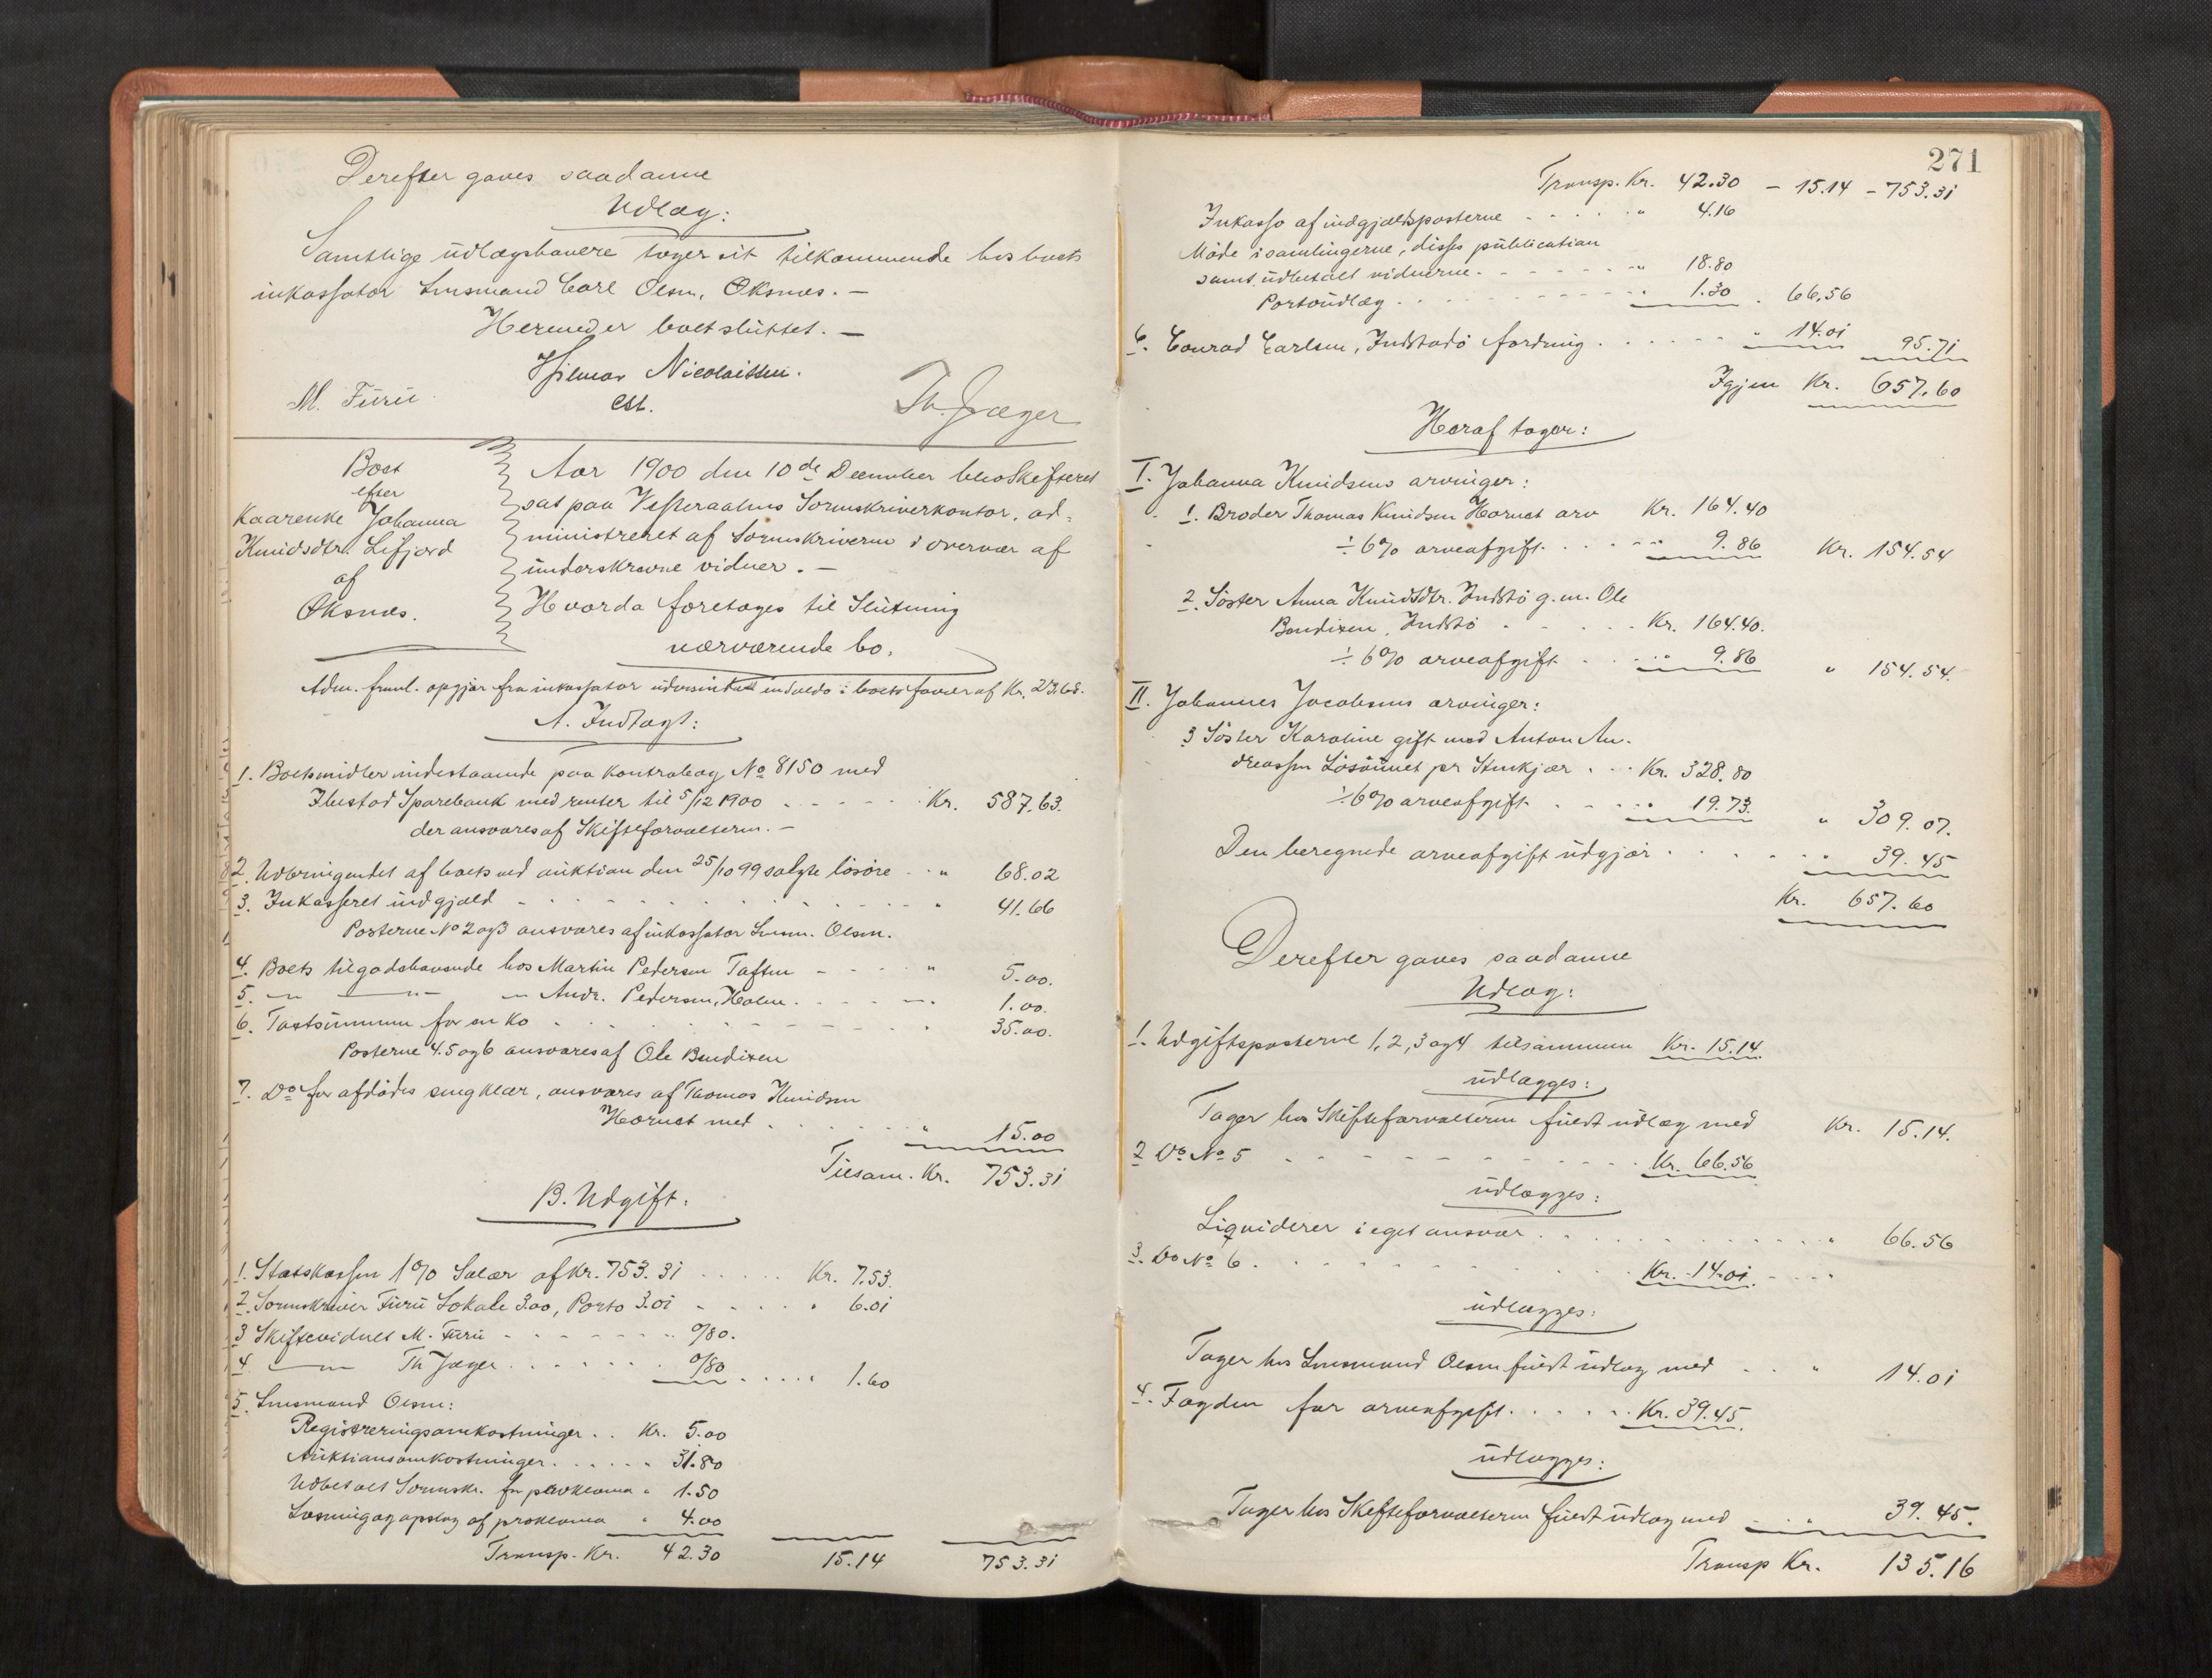 Derefter gaves saadanne
Udlæg:
Samtlige udlægshavere tager sit tilkommende hos boets
inkassator Lensmand Carl Olsen, Øksnes. —
Hermed er boet sluttet. —
Hilmar Nicolaissen.
M. Furu cst. Th. Jæger
Boet
efter
Kaarenke Johanna
Knudsdtr. Lifjord
af
Øksnes.
Aar 1900 den 10de December blev Skifteret
sat paa Vesteraalens Sorenskriverkontor, ad-
ministreret af Sorenskriveren i overvær af
underskrevne vidner. —
Hvorda foretoges til Slutning
nærværende bo.
Adm. freml. opgjør fra inkassator udvisende saldo i boets favør af Kr. 23.68.
A. Indtægt:
1. Boetsmidler indestaaende paa Kontrabog No 8150 med
Ibestad Sparebank med renter til 5/12 1900 . . . . . Kr. 587.63.
der ansvares af Skifteforvalteren. —
2. Udbringendet af boets ved auktion den 25/10 99 solgte løsøre . . " 68.02
3. Inkasseret indgjæld - . . . . . . . . . " 41.66
Posterne No 2 og 3 ansvares af inkassator Lensm. Olsen.
4. Boets tilgodehavende hos Martin Pedersen Toften - - - " 5.00.
5. — " — " — Andr. Pedersen, Holm. . . . . " 1.00.
6. Taxtsummen for en Ko . . . . . . . . . " 35.00.
Posterne 4. 5 og 6 ansvares af Ole Bendixen
7. Do for afdødes sengklær, ansvares af Thomas Knudsen
Hornet med . . . . . . " 15.00
Tilsam. Kr. 753.31
B. Udgift:
1. Statskassen 1% Salær af Kr. 753.31 . . . . . Kr. 7.53.
2. Sorenskriver Furu Lokale 3.00, Porto 3.01 - . . . . " 6.01
3 Skiftevidnet M. Furu - - - - - - - " 0/80.
4. — " — Th Jæger . . . . . . . 0/80 . . . . " 1.60
5. Lensmand Olsen:
Registreringsomkostninger . . Kr. 5.00
Auktionsomkostninger . . . . . " 31.80
Udbetalt Sorenskr. for proklama " 1.50
Læsning og opslag af proklama " 4.00
Transp. Kr. 42.30 15.14 753.31
271
Transp. Kr. 42.30 - 15.14 - 753.31
Inkasso af indgjældsposterne - - . . . " 4.16
Møde i samlingerne, disses publication
samt udbetalt vidnerne. - - - - - - " 18.80
Portoudlæg . . . . . . . . . . . " 1.30 . 66.56
6. Conrad Carlsen, Indstadø fordring . . . . . " 14.01 95.71
Igjen Kr. 657.60
Heraf tager:
I. Johanna Knudsens arvinger:
1. Broder Thomas Knudsen Hornet arv Kr. 164.40
÷ 6% arveafgift. . . . . " 9.86 Kr. 154.54
2. Søster Anna Knudsdtr. Indstø g. m. Ole
Bendixen, Indstø . . . . . . Kr. 164.40.
÷ 6% arveafgift . . . . " 9.86 " 154.54.
II. Johannes Jacobsens arvinger:
3 Søster Karoline gift med Anton An-
dreassen Løsøunet pr Stenkjær . . . Kr. 328.80
÷ 6% arveafgift . . . . . " 19.73. " 309.07.
Den beregnede arveafgift udgjør . . . . . " 39.45
Kr. 657.60
Derefter gaves saadanne
Udlæg:
1. Udgiftsposterne 1, 2, 3 og 4 tilsammen Kr. 15.14.
udlægges:
Tager hos Skifteforvalteren fuldt udlæg med Kr. 15.14.
2 Do No 5 . . . . . . . . . . Kr. 66.56
udlægges:
Liquiderer i eget ansvar . . . . . . . . . " 66.56
3. Do No 6 . . . . . . . . . . Kr. 14.01. . . .
udlægges:
Tager hos Lensmand Olsen fuldt udlæg med . . " 14.01
4. Fogden for arveafgift . . . . . Kr. 39.45.
udlægges:
Tager hos Skifteforvalteren fuldt udlæg med . . " 39.45.
Transp Kr. 135.16